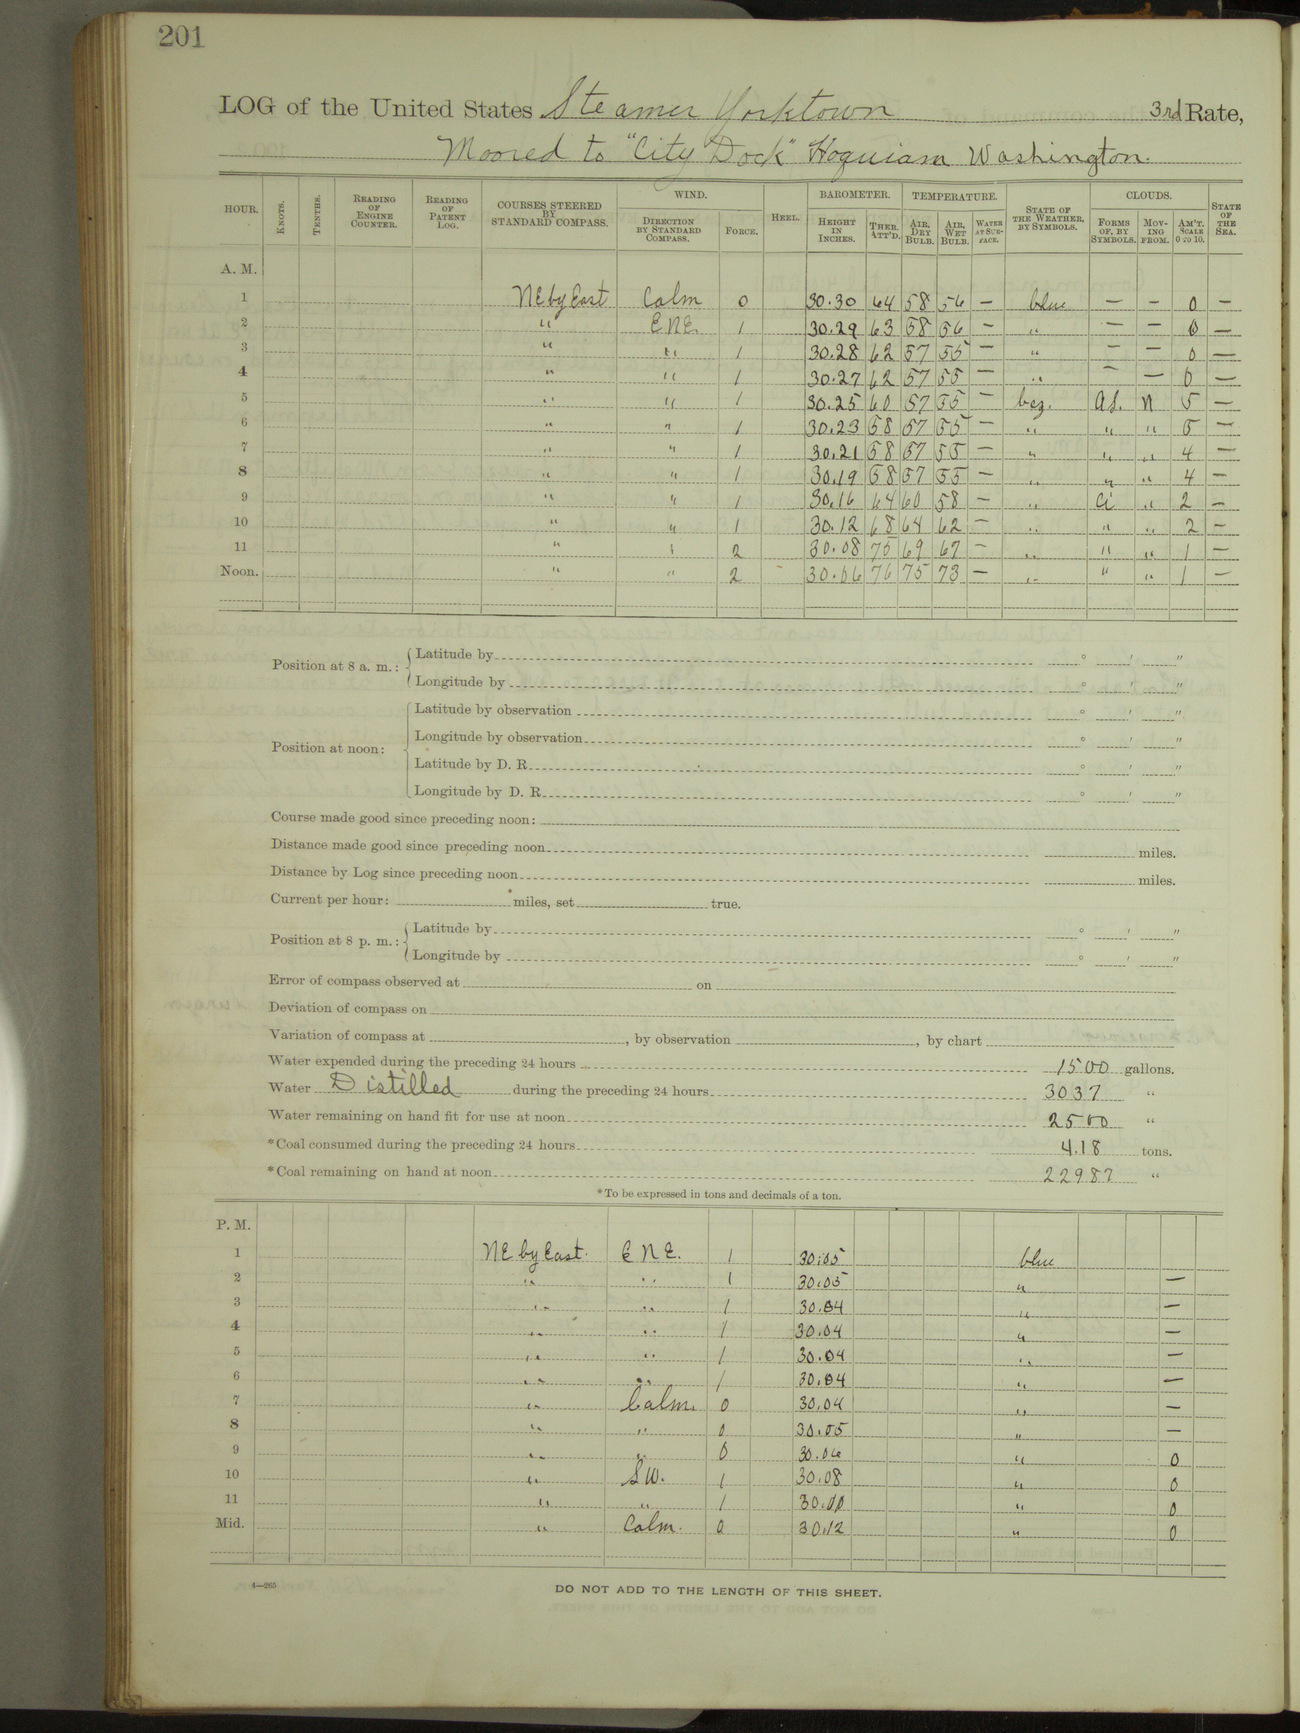 201
LOG of the United States Steamer Yorktown 3rd Rate,
Moored to "City Dock" Hoquiam Washington.
HOUR. KNOTS. TENTHS. READING OF ENGINE COUNTER. READING OF PATENT LOG. COURSES STEERED BY STANDARD COMPASS. WIND. DIRECTION BY STANDARD COMPASS. FORCE. HEEL. BAROMETER. HEIGHT IN INCHES. THER. ATT'D. TEMPERATURE. AIR, DRY BULB. AIR, WET BULB. WATER AT SURFACE. STATE OF THE WEATHER, BY SYMBOLS. CLOUDS. FORMS OF, BY SYMBOLS. MOVING FROM. AM'T. SCALE 0 TO 10. STATE OF THE SEA.
A. M.
1 NE by East Calm 0 30.30 64 58 56 — blue — — 0 —
2 " E N E. 1 30.29 63 58 56 — " — — 0 —
3 " " 1 30.28 62 57 55 — " — — 0 —
4 " " 1 30.27 62 57 55 — " — — 0 —
5 " " 1 30.25 60 57 55 — bcz. A.S. N 5 —
6 " " 1 30.23 58 57 55 — " " " 5 —
7 " " 1 30.21 58 57 55 — " " " 4 —
8 " " 1 30.19 58 57 55 — " " " 4 —
9 " " 1 30.16 64 60 58 — " Ci " 2 —
10 " " 1 30.12 68 64 62 — " " " 2 —
11 " " 2 30.08 75 69 67 — " " " 1 —
Noon. " " 2 30.06 76 75 73 — " " " 1 —
Position at 8 a. m.: Latitude by ° ' "
Longitude by ° ' "
Position at noon: Latitude by observation ° ' "
Longitude by observation ° ' "
Latitude by D. R. ° ' "
Longitude by D. R. ° ' "
Course made good since preceding noon:
Distance made good since preceding noon miles.
Distance by Log since preceding noon miles.
Current per hour: miles, set true.
Position at 8 p. m.: Latitude by ° ' "
Longitude by ° ' "
Error of compass observed at on
Deviation of compass on
Variation of compass at , by observation , by chart
Water expended during the preceding 24 hours 1500 gallons.
Water Distilled during the preceding 24 hours 3037 "
Water remaining on hand fit for use at noon 2500 "
*Coal consumed during the preceding 24 hours 4.18 tons.
*Coal remaining on hand at noon 229.87 "
*To be expressed in tons and decimals of a ton.
P. M.
1 NE by East. E N E. 1 30.05 blue
2 " " 1 30.05 " —
3 " " 1 30.04 " —
4 " " 1 30.04 " —
5 " " 1 30.04 " —
6 " " 1 30.04 " —
7 " Calm. 0 30.04 " —
8 " " 0 30.05 " —
9 " " 0 30.06 " 0
10 " SW. 1 30.08 " 0
11 " " 1 " 0
Mid. " Calm. 0 30.12 " 0
4—265
DO NOT ADD TO THE LENGTH OF THIS SHEET.